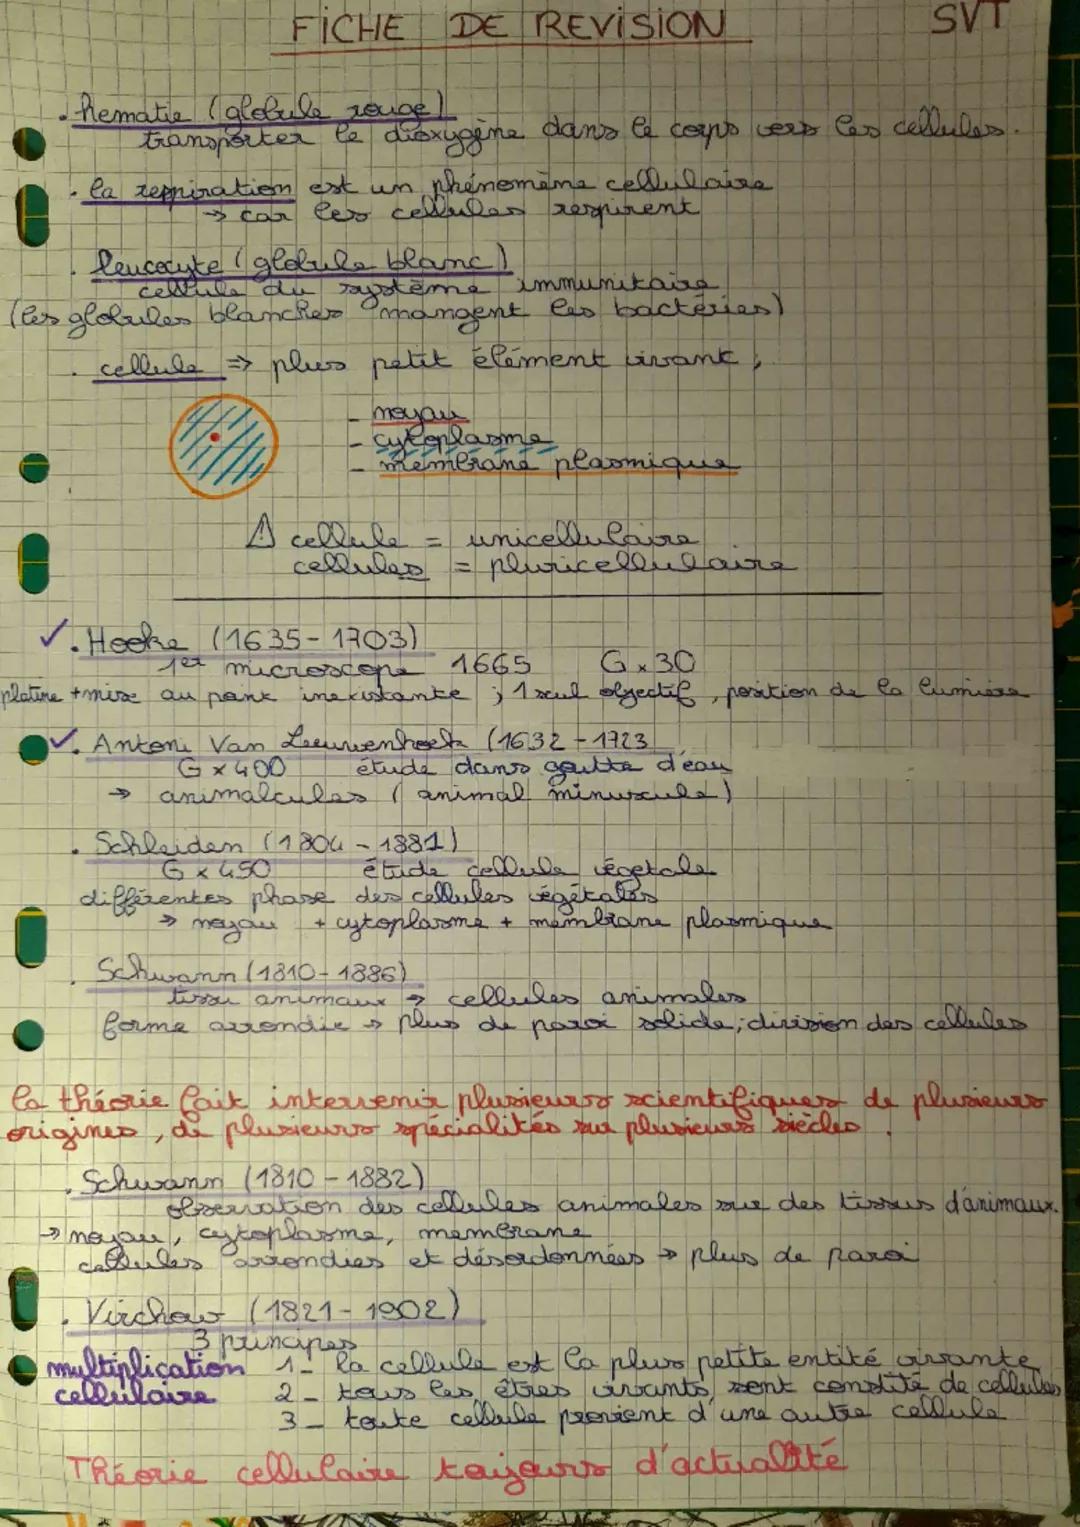 FICHE DE REVISION
SVT
. hematie (globule rouge)
transporter le dioxygène dans le corps vers les cellules.
. la respiration est un phénomène cellulaire
→ car les cellules respirent
. leucocyte (globule blanc)
cellule du système immunitaire
(les globules blanches mangent les bactéries)
. cellule ⇒ plus petit élément vivant ;
- noyau
- cytoplasme
- membrane plasmique
⚠ cellule = unicellulaire
cellules = pluricellulaire
✓. Hooke (1635-1703)
1er microscope 1665 G x 30
platine + mise au point inexistante ; 1 seul objectif, position de la lumière
✓. Antoni Van Leeuwenhoek (1632-1723
G x 400 étude dans goutte d'eau
→ animalcules (animal minuscule)
. Schleiden (1804-1881)
G x 450 étude cellule végétale
différentes phase des cellules végétales
→ noyau + cytoplasme + membrane plasmique
. Schwann (1810-1886)
tissu animaux → cellules animales
forme arrondie → plus de paroi solide ; division des cellules
la théorie fait intervenir plusieurs scientifiques de plusieurs
origines, de plusieurs spécialités sur plusieurs siècles.
. Schwann (1810-1882)
observation des cellules animales sur des tissus d'animaux.
→ noyau, cytoplasme, membrane
cellules arrondies et désordonnées → plus de paroi
. Virchow (1821-1902)
3 principes
multiplication 1- la cellule est la plus petite entité vivante
cellulaire 2- tous les êtres vivants sont constitué de cellules
3- toute cellule provient d'une autre cellule
Théorie cellulaire toujours d'actualité